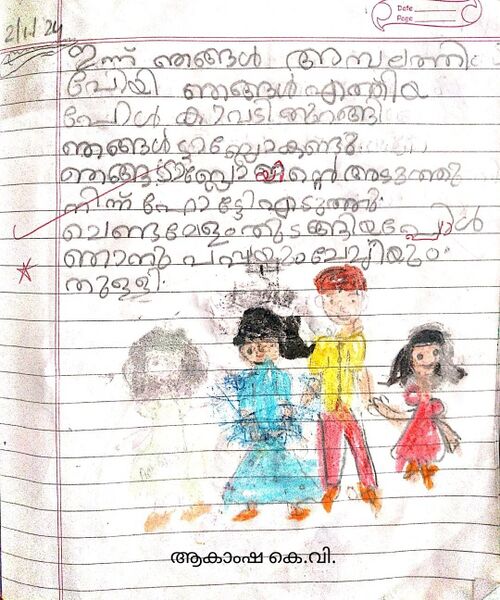 Date
Page
2/1/24
ഇന്ന് ഞങ്ങൾ അമ്പലത്തിൽ
പോയി ഞങ്ങൾ എത്തിയ
പ്പോൾ കാവടി തുടങ്ങി
ഞങ്ങൾ ടാബ്ലോ കണ്ടു.
ഞങ്ങ ടാബ്ലോ യിന്റെ അടുത്ത്
നിന്ന് ഫോട്ടോ എടുത്തു.
ചെണ്ടമേളം തുടങ്ങിയപ്പോൾ
ഞാനും
തുള്ളി.
ആകാംഷ കെ.വി.